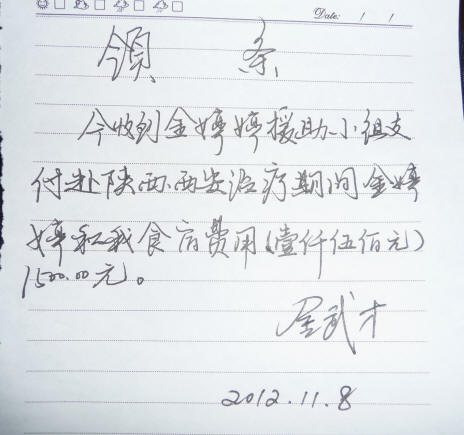 Date: / /
领 条
今收到金婷婷援助小组支
付赴陕西西安治疗期间金婷
婷和我食宿费用(壹仟伍佰元)
1500.00元。
金武才
2012.11.8